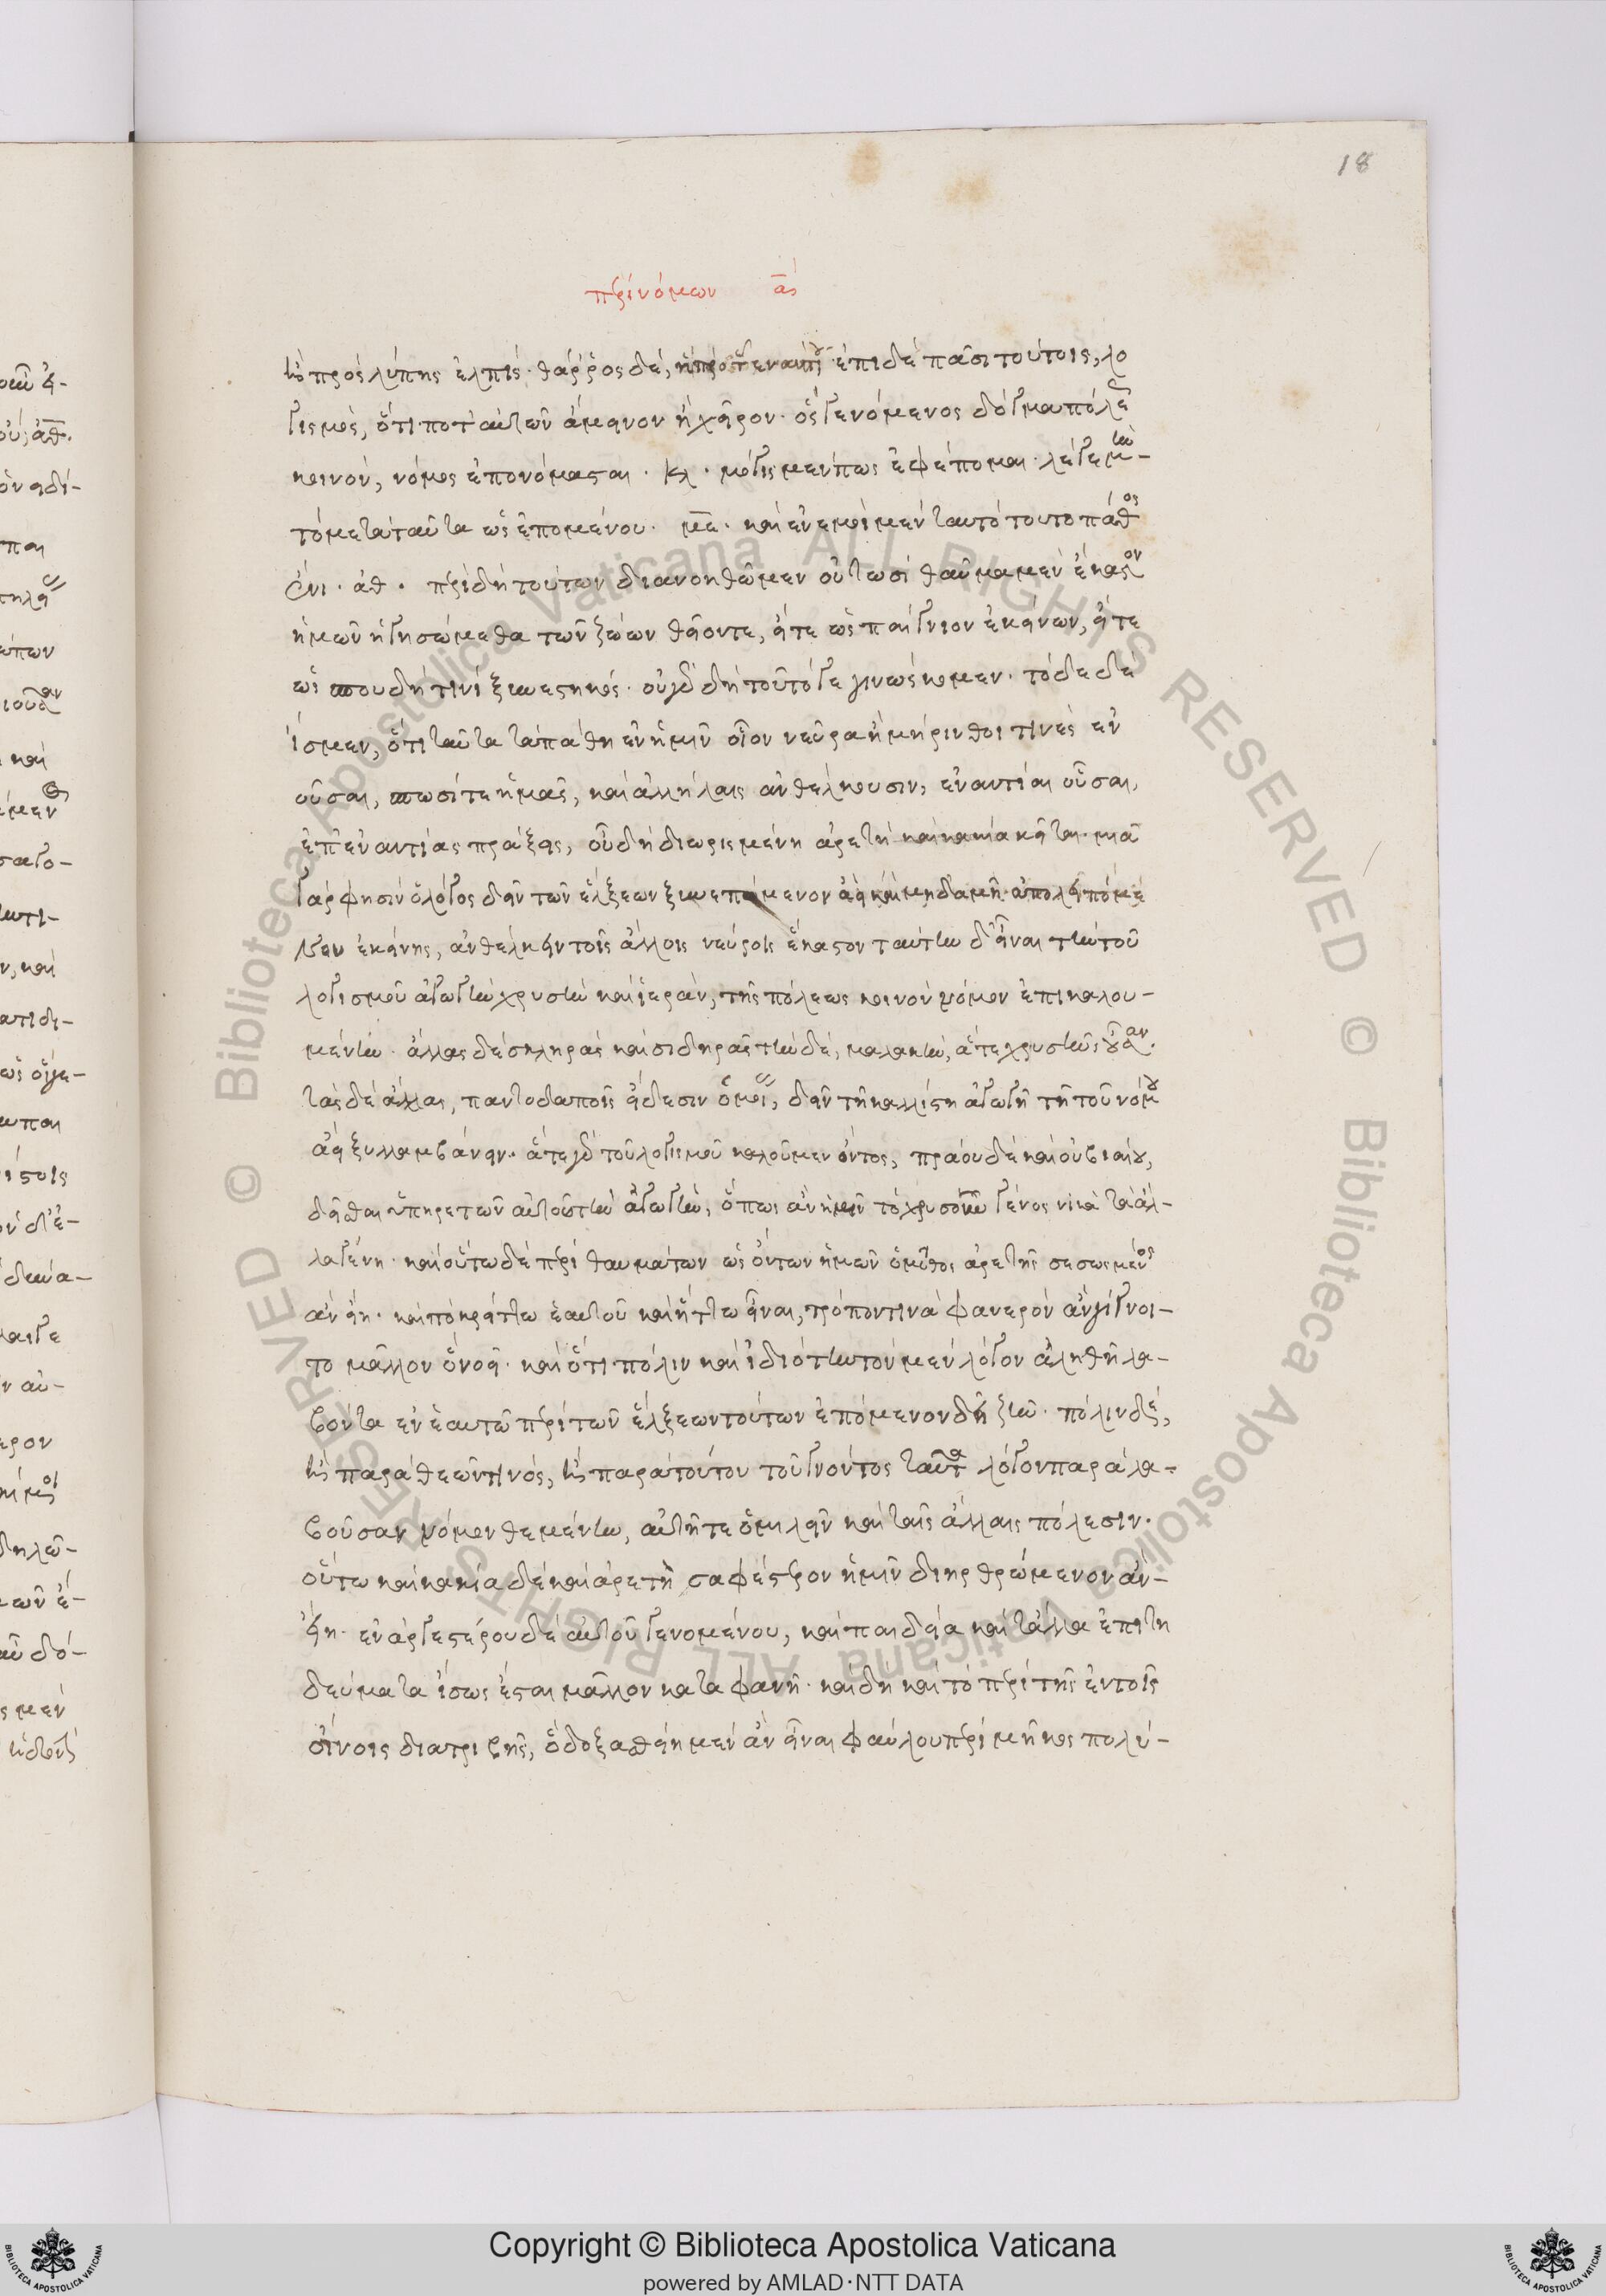 18
περὶ νόμων α
ἡ πρὸ λύπης ἐλπίς· θάρρος δέ, ἡ πρὸ τοῦ ἐναντίου· ἐπὶ δὲ πᾶσι τούτοις, λο
γισμὸς, ὅτι ποτ' αὐτῶν ἄμεινον ἢ χεῖρον· ὃς γενόμενος δόγμα πόλεως
κοινὸν, νόμος ἐπονόμασται. κλ. μόγις μέν πως ἐφέπομαι. λέγε μὴν
τὸ μετὰ ταῦτα ὡς ἑπομένου. με. καὶ ἐν ἐμοὶ μὲν ταυτὸ τοῦτο πάθος
ἔνι. αθ. περὶ δὴ τούτων διανοηθῶμεν οὑτωσί· θαῦμα μὲν ἕκαστον
ἡμῶν ἡγησώμεθα τῶν ζώων θεῖον τε, εἴτε ὡς παίγνιον ἐκείνων, εἴτε
ὡς σπουδῇ τινὶ ξυνεστηκός· οὐ γὰρ δὴ τοῦτό γε γινώσκομεν· τόδε δὲ
ἴσμεν, ὅτι ταῦτα τὰ πάθη ἐν ἡμῖν οἷον νεῦρα ἢ μήρινθοί τινες ἐν
οῦσαι, σπωσί τε ἡμᾶς, καὶ ἀλλήλαις ἀνθέλκουσιν, ἐναντίαι οὖσαι,
ἐπ' ἐναντίας πράξεις, οὗ δὴ διωρισμένη ἀρετὴ καὶ κακία κεῖται. μιᾷ
γάρ φησιν ὁ λόγος δεῖν τῶν ἕλξεων ξυνεπόμενον ἀεὶ καὶ μηδαμῇ ἀπολειπόμε
νον ἐκείνης, ἀνθέλκειν τοῖς ἄλλοις νεύροις ἕκαστον ταύτην δ' εἶναι τὴν τοῦ
λογισμοῦ ἀγωγὴν χρυσὴν καὶ ἱερὰν, τῆς πόλεως κοινὸν νόμον ἐπικαλου-
μένην. ἄλλας δὲ σκληρὰς καὶ σιδηρᾶς τὴν δὲ, μαλακὴν, ἅτε χρυσῆν οὖσαν.
τὰς δὲ ἄλλας, παντοδαποῖς εἴδεσιν ὁμοίας, δεῖν τῇ καλλίστῃ ἀγωγῇ τῇ τοῦ νόμου
ἀεὶ ξυλλαμβάνειν. ἅτε γὰρ τοῦ λογισμοῦ καλοῦ μὲν ὄντος, πράου δὲ καὶ οὐ βιαίου,
δεῖσθαι ὑπηρετῶν αὐτοῦ τὴν ἀγωγὴν, ὅπως ἂν ἡμῖν τὸ χρυσοῦν γένος νικᾷ τὰ ἄλ-
λα γένη. καὶ οὕτω δὲ περὶ θαυμάτων ὡς ὄντων ἡμῶν ὁ μῦθος ἀρετῆς σεσωσμένος
ἂν εἴη. καὶ τὸ κρείττω ἑαυτοῦ καὶ ἥττω εἶναι, τρόπον τινὰ φανερὸν ἂν γίγνοι-
το μᾶλλον ὃ νοεῖ. καὶ ὅτι πόλιν καὶ ἰδιώτην τὸν μὲν λόγον ἀληθῆ λα-
βόντα ἐν ἑαυτῷ περὶ τῶν ἕλξεων τούτων ἑπόμενον δεῖ ζῆν. πόλιν δὲ,
ἢ παρὰ θεῶν τινὸς, ἢ παρὰ τούτου τοῦ γνόντος ταῦτα λόγον παραλα-
βοῦσαν νόμον θεμένην, αὑτῇ τε ὁμιλεῖν καὶ ταῖς ἄλλαις πόλεσιν.
οὕτω καὶ κακία δὲ καὶ ἀρετὴ σαφέστερον ἡμῖν διηρθρώμενον ἂν-
εἴη. ἐναργεστέρου δὲ αὐτοῦ γενομένου, καὶ παιδεία καὶ τἆλλα ἐπιτη
δεύματα ἴσως ἔσται μᾶλλον καταφανῆ. καὶ δὴ καὶ τὸ περὶ τῆς ἐν τοῖς
οἴνοις διατριβῆς, ὃ δοξασθείη μὲν ἂν εἶναι φαύλου πέρι μῆκος πολὺ-
Copyright © Biblioteca Apostolica Vaticana
powered by AMLAD·NTT DATA